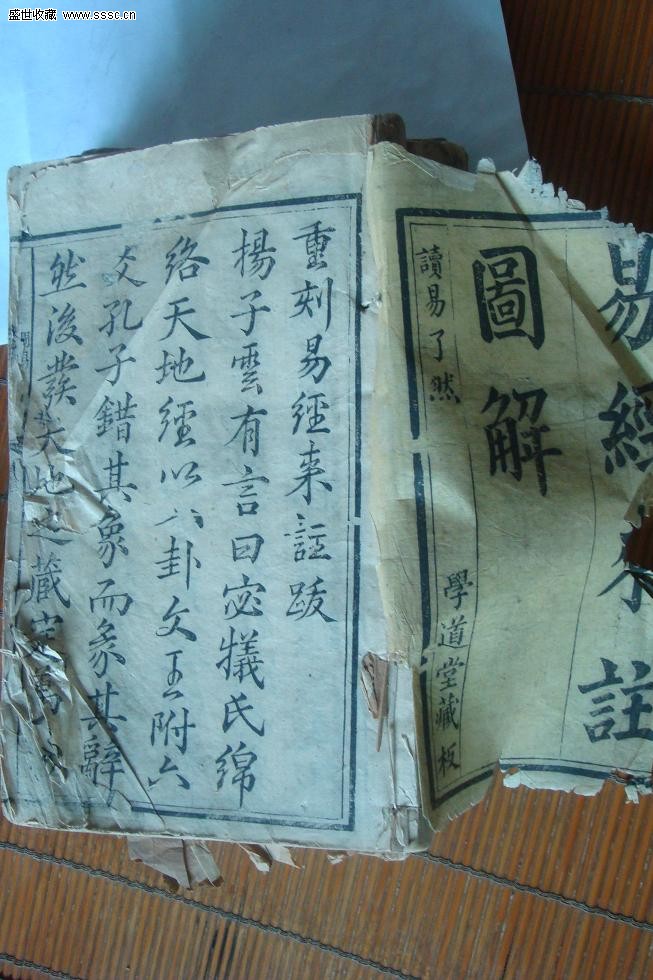 盛世收藏 www.sssc.cn
易經來註
圖解
讀易了然
學道堂藏板
重刻易經来註跋
楊子雲有言曰宓犧氏綿
络天地經以八卦文王附六
爻孔子錯其象而彖其辭
然後發天地之藏定萬